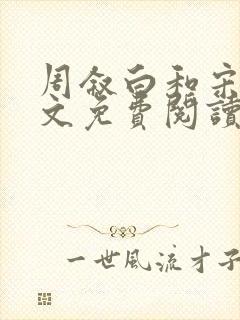 周叙白和宋
文免費閱讀
一世風流才子